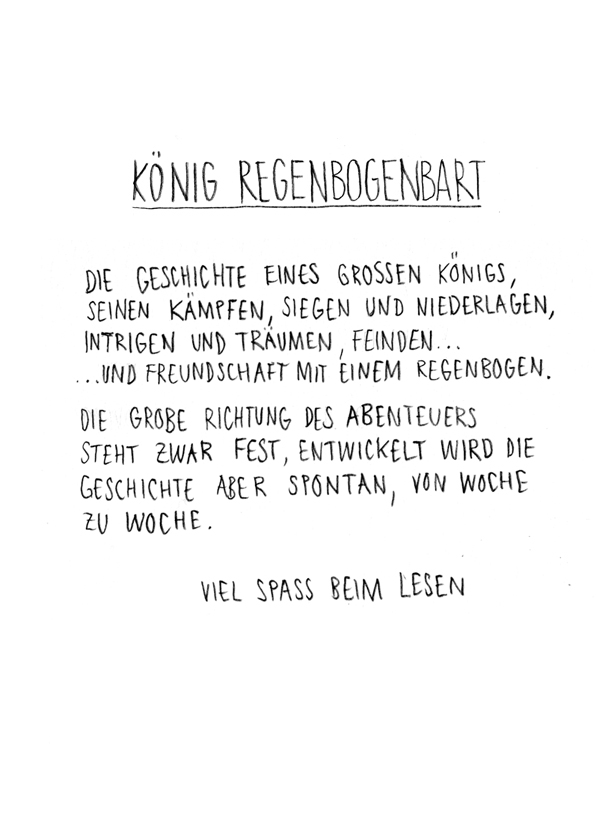 KÖNIG REGENBOGENBART
DIE GESCHICHTE EINES GROSSEN KÖNIGS,
SEINEN KÄMPFEN, SIEGEN UND NIEDERLAGEN,
INTRIGEN UND TRÄUMEN, FEINDEN...
...UND FREUNDSCHAFT MIT EINEM REGENBOGEN.
DIE GROBE RICHTUNG DES ABENTEUERS
STEHT ZWAR FEST, ENTWICKELT WIRD DIE
GESCHICHTE ABER SPONTAN, VON WOCHE
ZU WOCHE.
VIEL SPASS BEIM LESEN